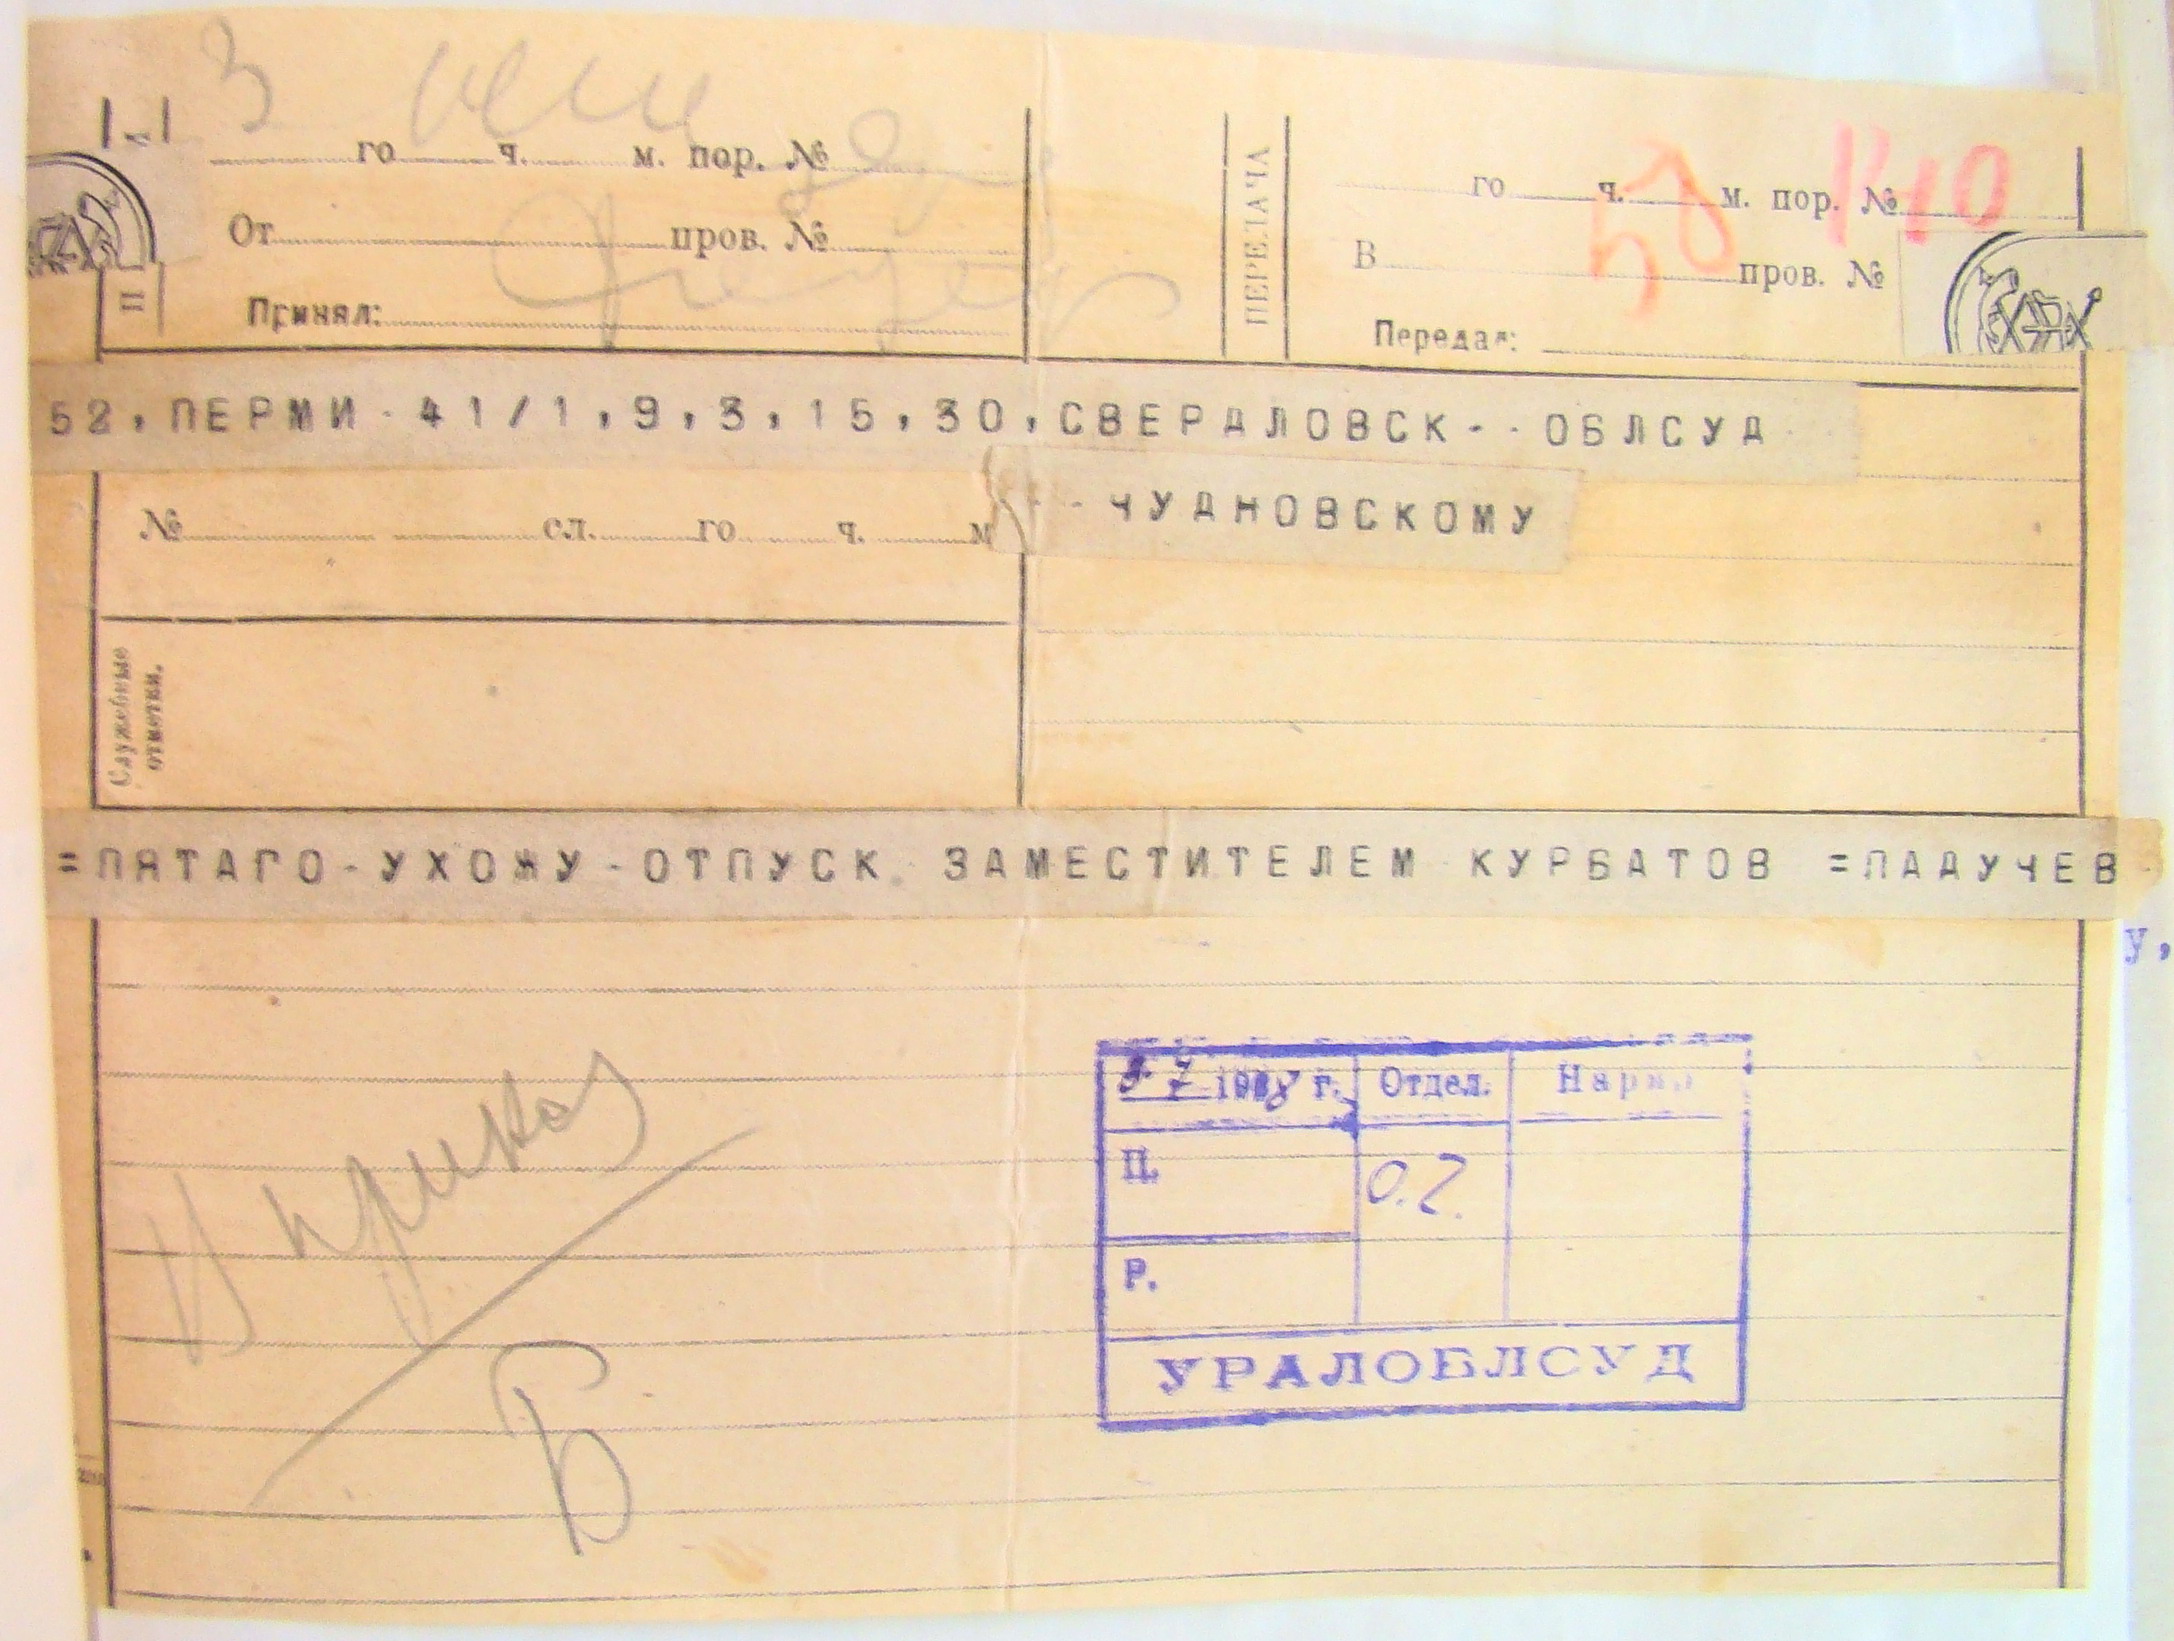 3
го ч. м. пор. №
От пров. №
Принял:
ПЕРЕДАЧА
го ч. м. пор. № 140
В пров. №
Передал:
52, ПЕРМИ 41/1,9,3,15,30, СВЕРДЛОВСК-- ОБЛСУД
-- ЧУДНОВСКОМУ
№ сл. го ч. м
Служебные
отметки.
=ПЯТАГО-УХОЖУ-ОТПУСК. ЗАМЕСТИТЕЛЕМ КУРБАТОВ =ПАДУЧЕВ
у,
1928 г. Отдел.
П.
О.2.
Р.
УРАЛОБЛСУД
К приказу
Б